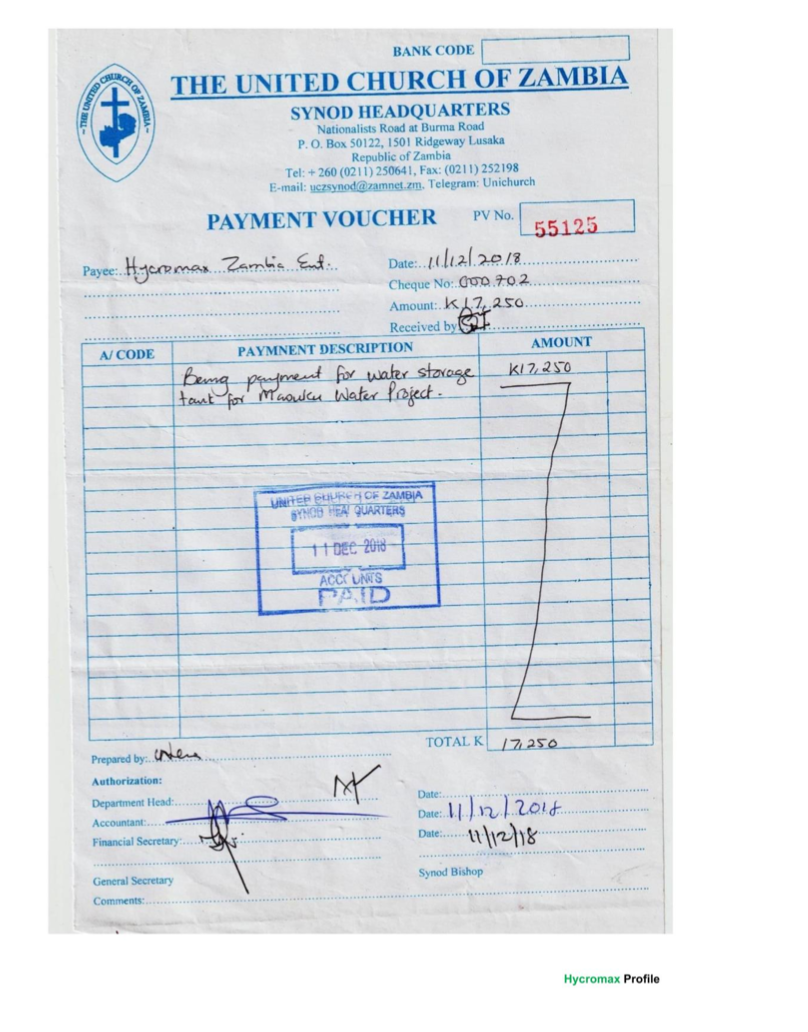 BANK CODE
THE UNITED CHURCH OF ZAMBIA
THE UNITED CHURCH OF ZAMBIA
SYNOD HEADQUARTERS
Nationalists Road at Burma Road
P. O. Box 50122, 1501 Ridgeway Lusaka
Republic of Zambia
Tel: + 260 (0211) 250641, Fax: (0211) 252198
E-mail: uczsynod@zamnet.zm, Telegram: Unichurch
PAYMENT VOUCHER PV No. 55125
Payee: Hycromax Zambia Ent. Date: 11/12/2018
Cheque No: 000702
Amount: K17,250
Received by
A/ CODE PAYMNENT DESCRIPTION AMOUNT
Being payment for water storage K17,250
tank for Water Project.
UNITED CHURCH OF ZAMBIA
SYNOD HEADQUARTERS
11 DEC 2018
ACCOUNTS
PAID
TOTAL K 17,250
Prepared by:
Authorization:
Department Head: Date:
Accountant: Date: 11/12/2018
Financial Secretary: Date: 11/12/18
General Secretary Synod Bishop
Comments:
Hycromax Profile